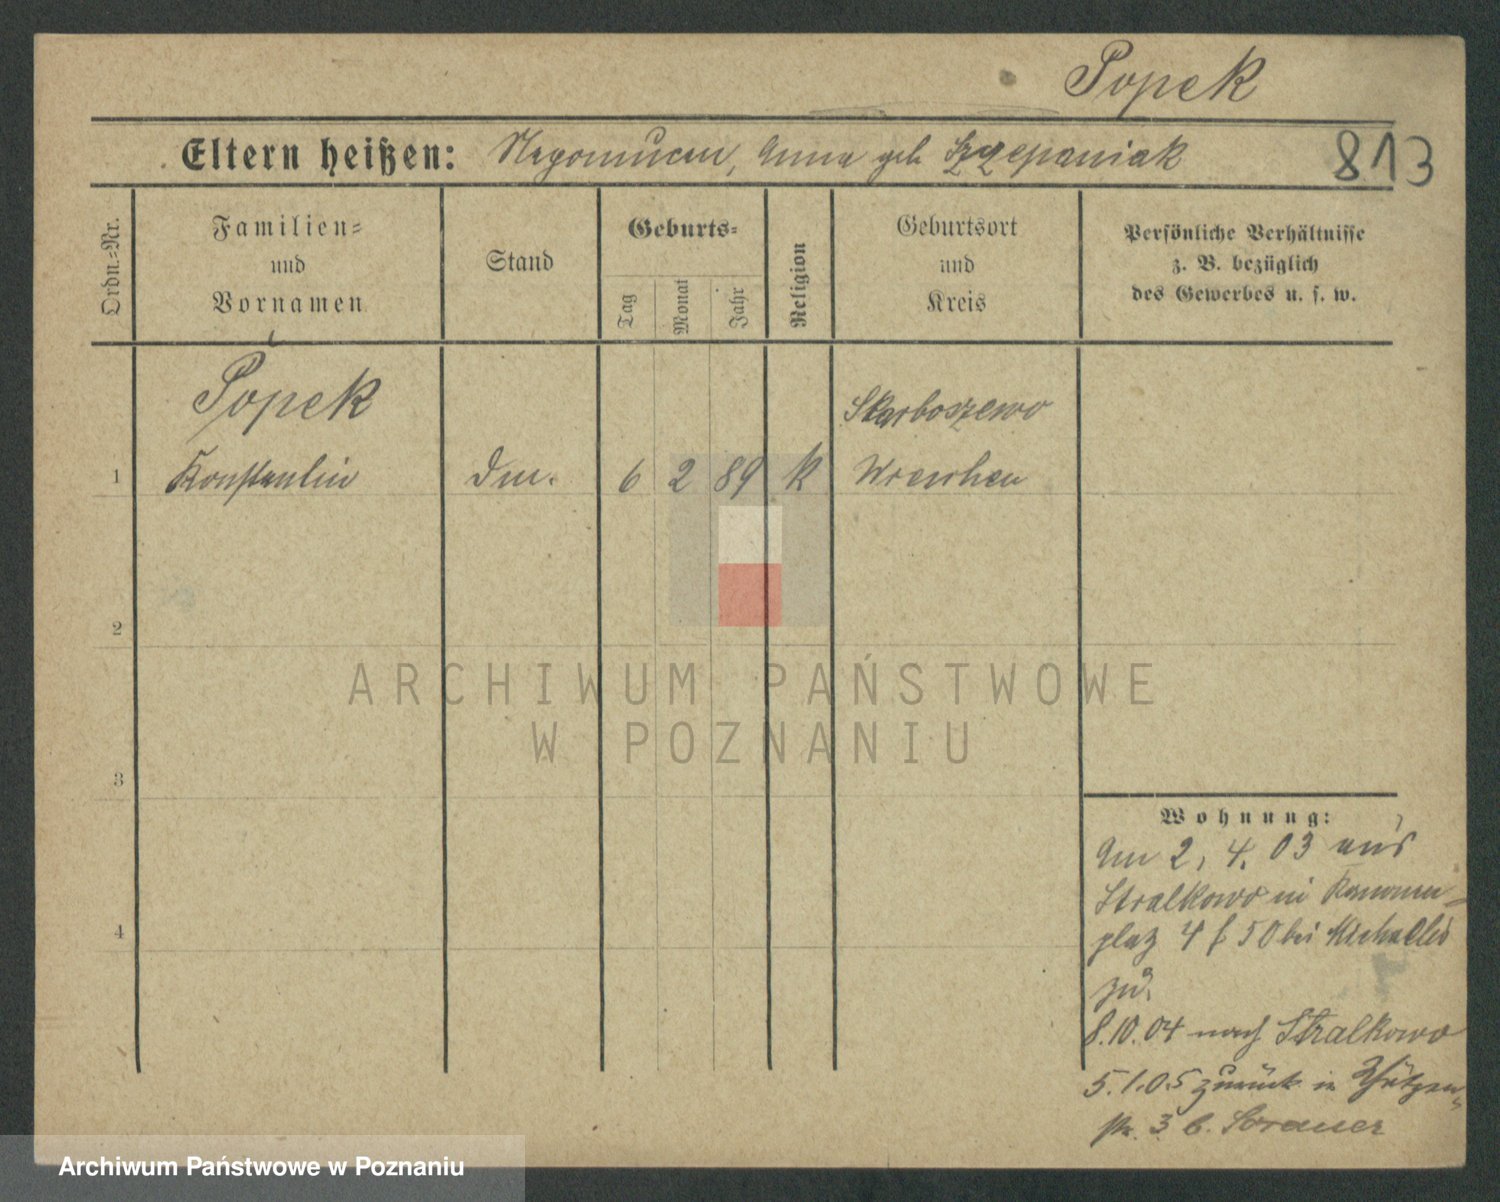 Popek
Eltern heißen: Nepomucen, Anna geb Szczepaniak
813
Ordn.-Nr.
Familien-
und
Vornamen
Stand
Geburts-
Tag
Monat
Jahr
Religion
Geburtsort
und
Kreis
Persönliche Verhältnisse
z. B. bezüglich
des Gewerbes u. s. w.
Popek
Skarboszewo
1 Konstantin 6 2 89 k Wreschen
2
3
4
Wohnung:
Am 2, 4. 03 aus
Stralkowo in Kanonen-
platz 4 f 50 bei Michaelis
zu.
8.10.04 nach Stralkowo
5.1.05 zurück in Schützen-
str. 3 b.
ARCHIWUM PAŃSTWOWE
W POZNANIU
Archiwum Państwowe w Poznaniu